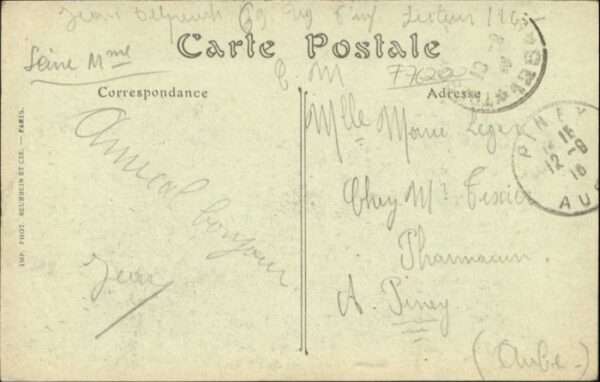 Jean Delpeuch 69 Rég d'inf Secteur 116
Seine Mme
Carte Postale
F. M
77620
Correspondance
Adresse
Amical bonjour
Jean
Mlle Marie Leger
Chez Mr Texier
Pharmacien
A Piney
(Aube.)
PINEY
15
12-9
16
AU
IMP. PHOT. NEURDEIN ET CIE. — PARIS.